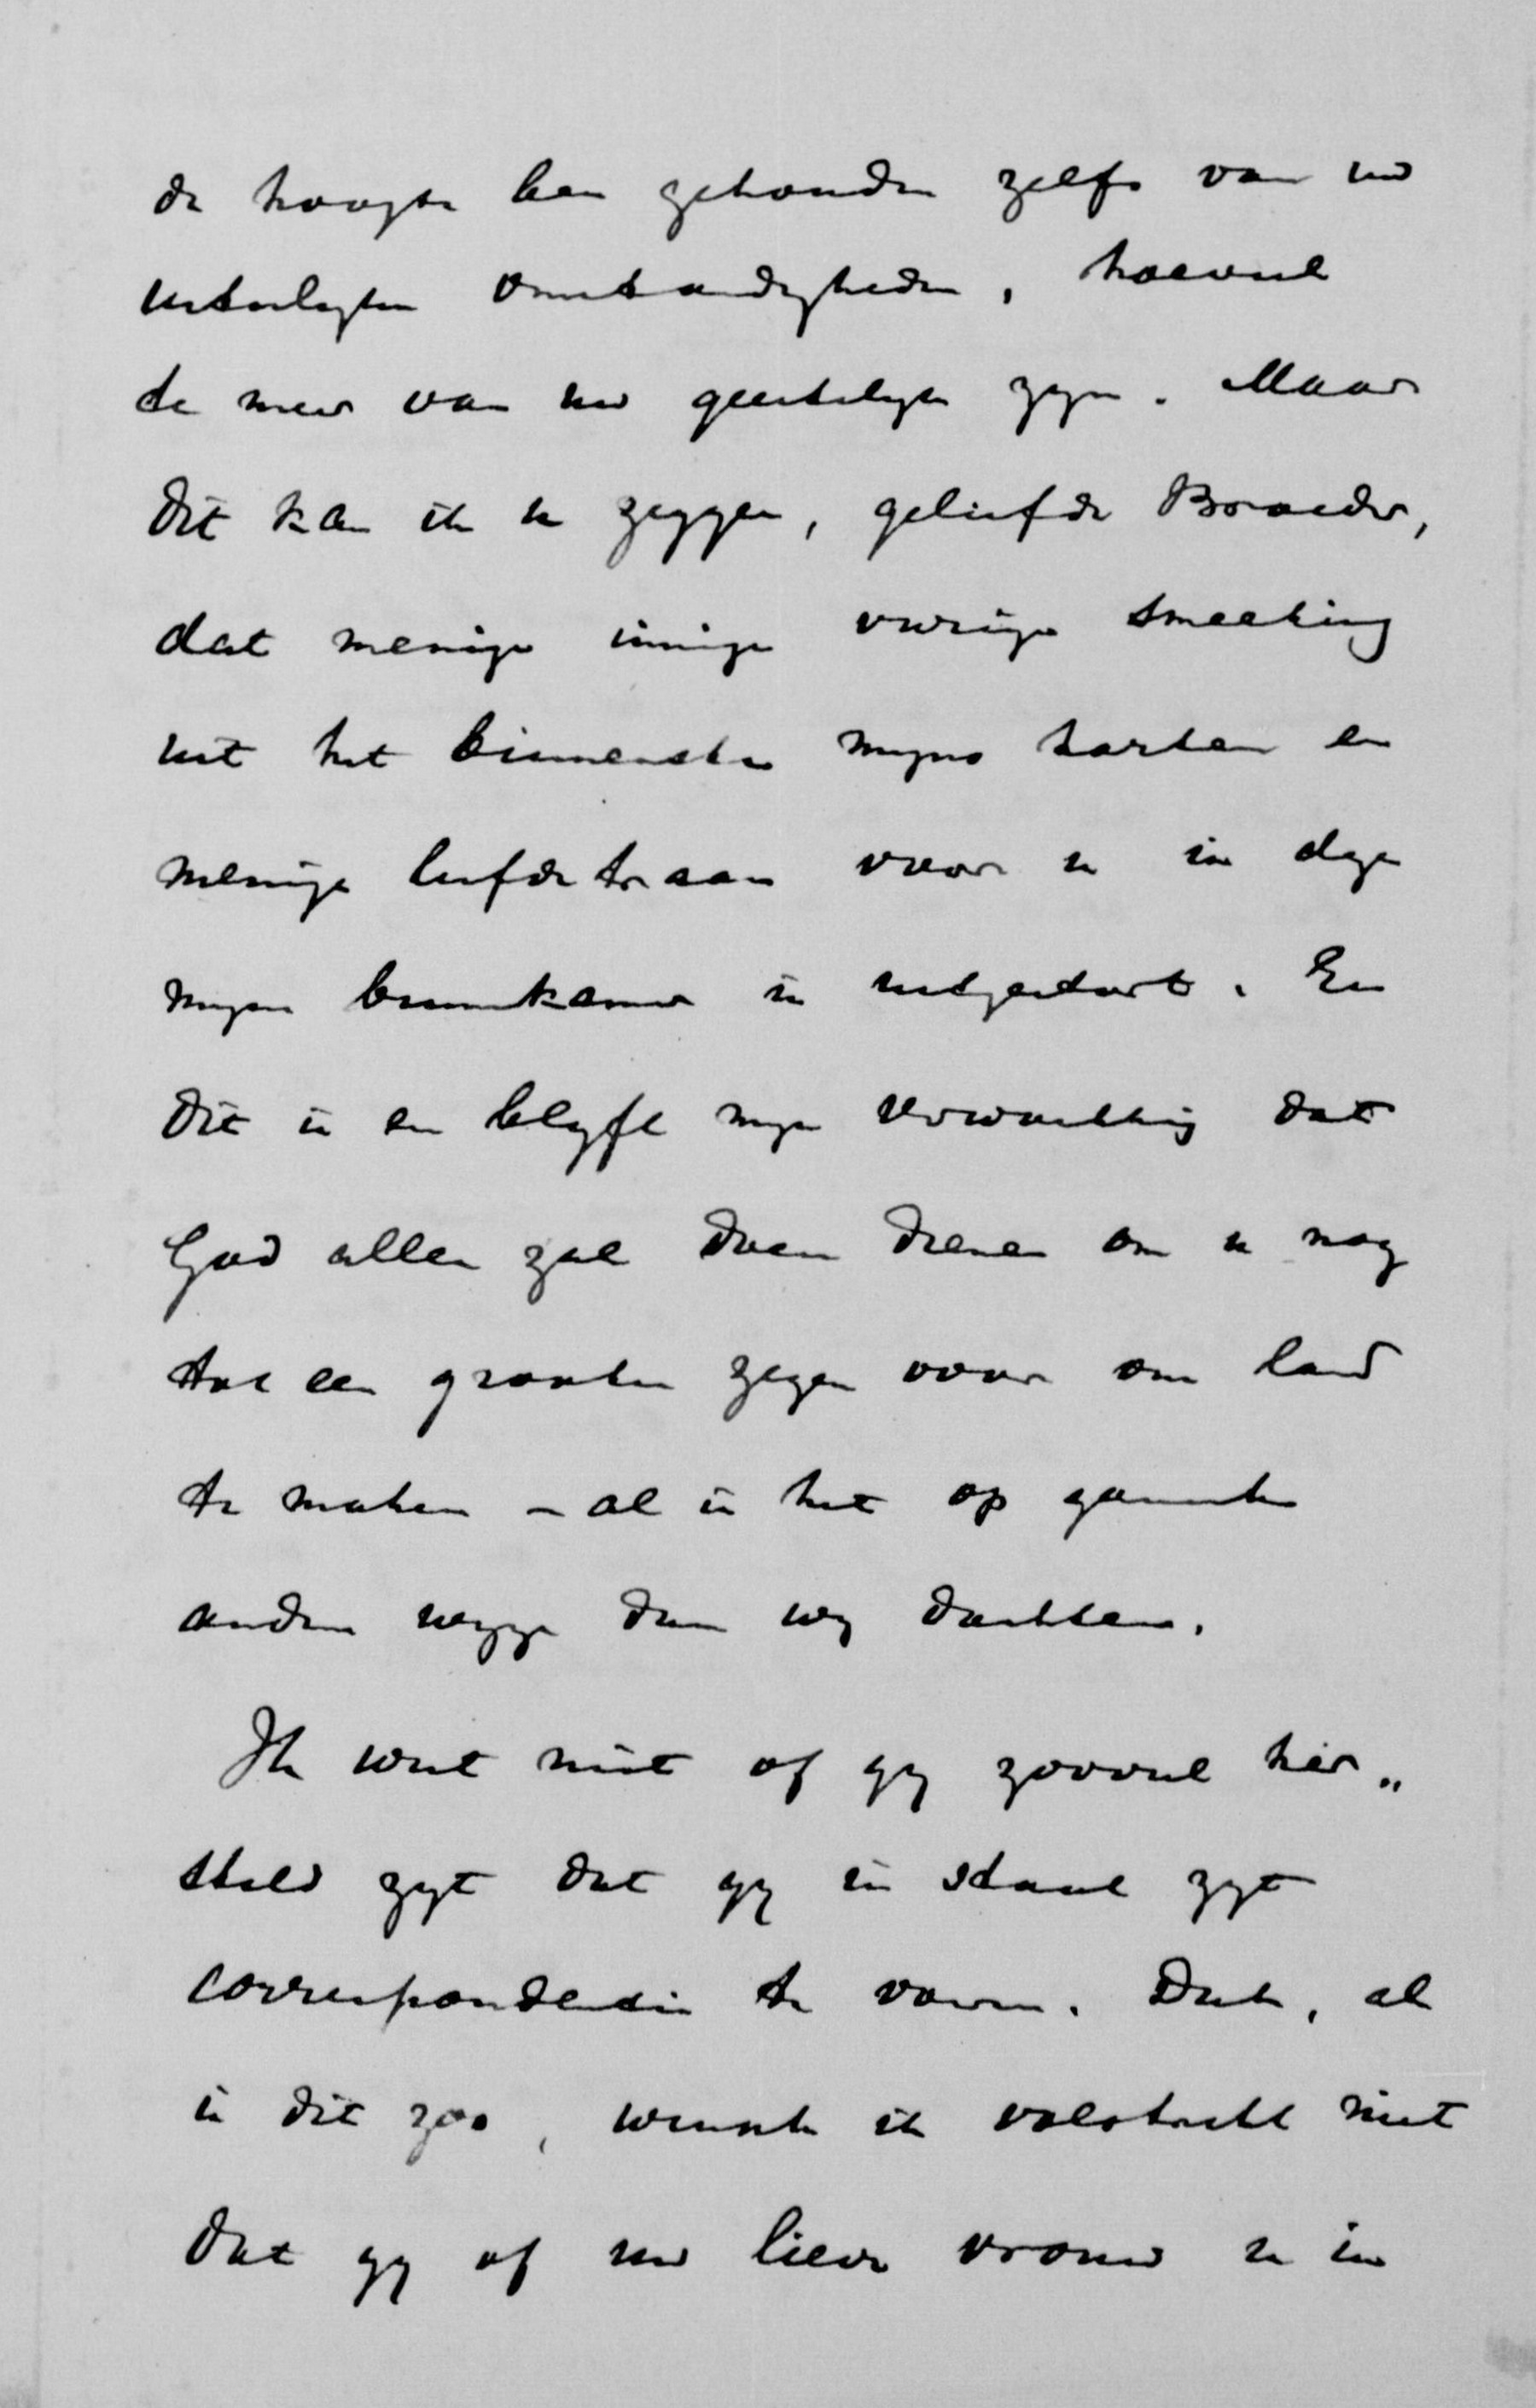 de hoogte ben gehouden zelfs van uw
uiterlyke omstandigheden, hoeveel
te meer van uw geestelyke zyn. Maar
dit kan ik u zeggen, geliefde Broeder,
dat menige innige vurige smeeking
uit het binnenste myns harten en
menige liefde traan voor u in
myne binnenkamer is uitgestort. En
dit is en blyft myn verwachting dat
God alles zal doen dienen om u nog
tot een grooten zegen voor ons land
te maken – al is het op gansch
andere wyze dan wy dachten.
Ik weet niet of gy zooveel her„
steld zyt dat gy in staat zyt
correspondentie te voeren. Doch, al
is dit zoo, wensch ik volstrekt niet
dat gy of uw lieve vrouw u in